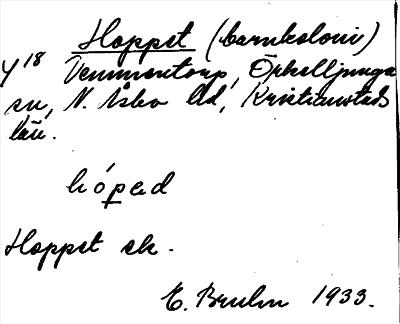 Hoppet (barnkoloni)
Y 18 Vemmentorp, Örkelljunga
sn, N. Åsbo hd, Kristianstads
län.
hópəd
Hoppet ek.
E. Bruhn 1933.